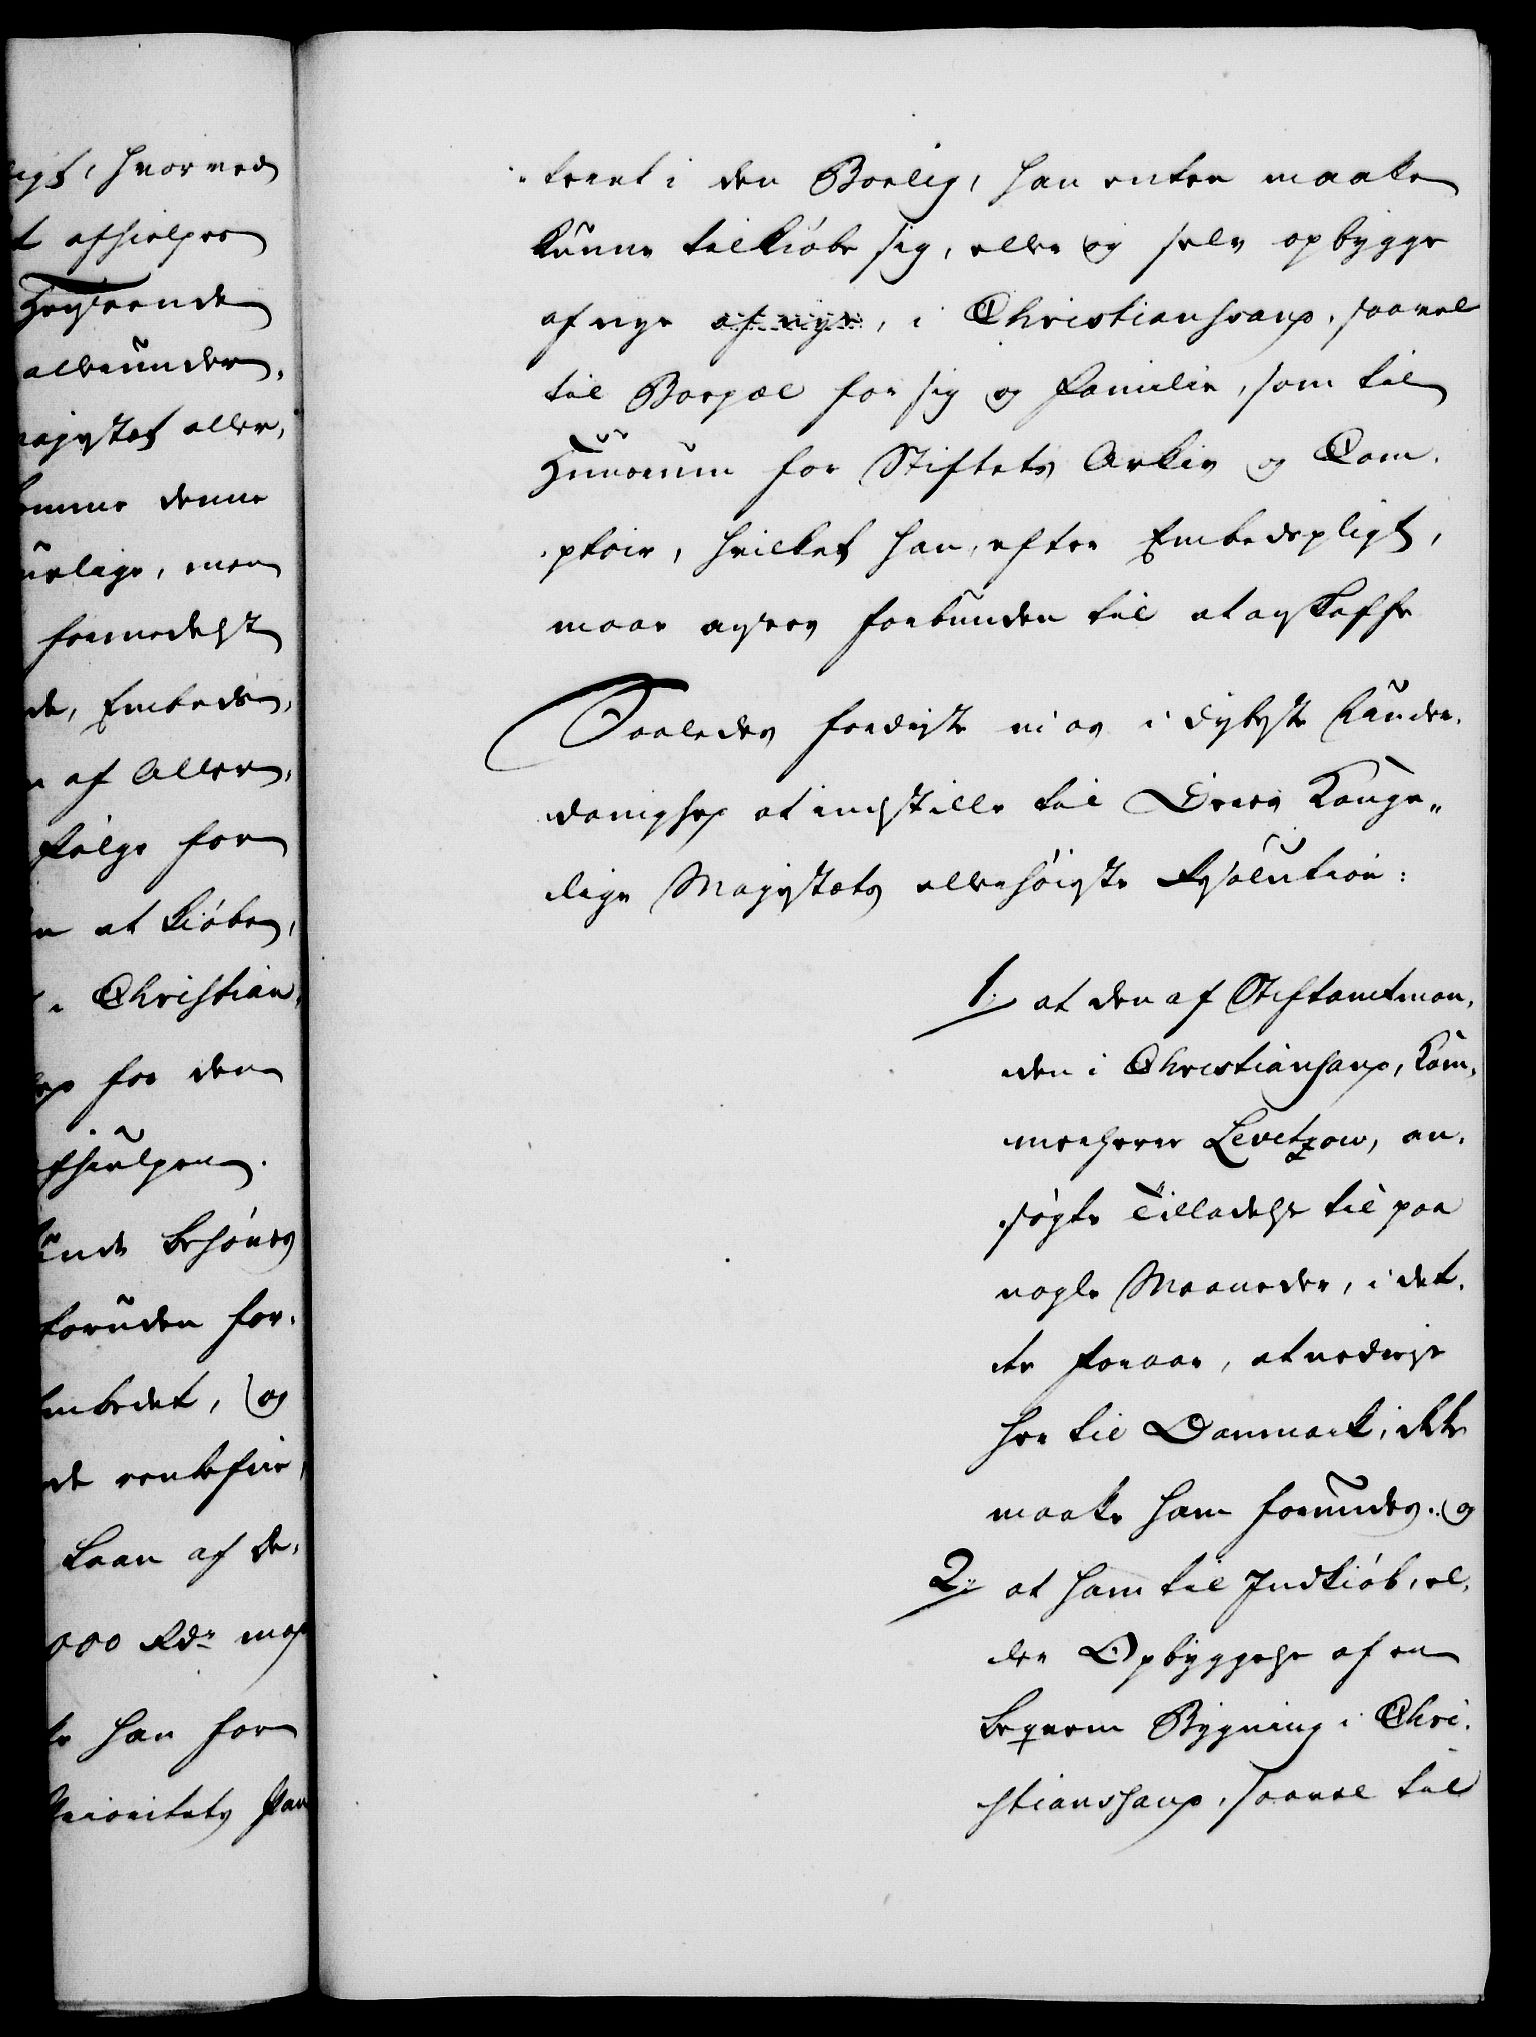 igt, hvorved
t afhielpes
Høystærende
allerunder,
majestæt aller,
komme denne
urlige, men
formedelst
de, Embeds,
n af Aller,
følge for
n at kiøbe,
i Christian,
for den
afhielpes.
kunde behøves
foruden for,
Embedet, og
de rentefrie,
Laan af de,
000 Rdr mod
te han for
Prioritets Pan
teret i den Boelig, han enten maatte
kunne tilkiøbe sig, eller og selv opbygge
af nye af nye, i Christianssand, saavel
til Boepæl for sig og Familie, som til
Huusrum for Stiftets Arkiv og Com,
ptoir, hvilket han, efter Embedspligt,
maae agtes forbunden til at anskaffe
Saaledes fordriste vi os i dybeste Under,
danighed at indstille til Deres Konge,,
lige Majestæts allerhøieste Resolution:
1/ at den af Stiftamtman,
den i Christiansand, Kam,
merherre Levetzow, an,
søgte Tilladelse til paa
nogle Maaneder, i det,
te Foraar, at nedreise
her til Danmark, ikke
maatte ham forundes. og
2/ at ham til Indkiøb, el,
ler Opbyggelse af en
beqvem Bygning i Chri,
stianssand, saavel til